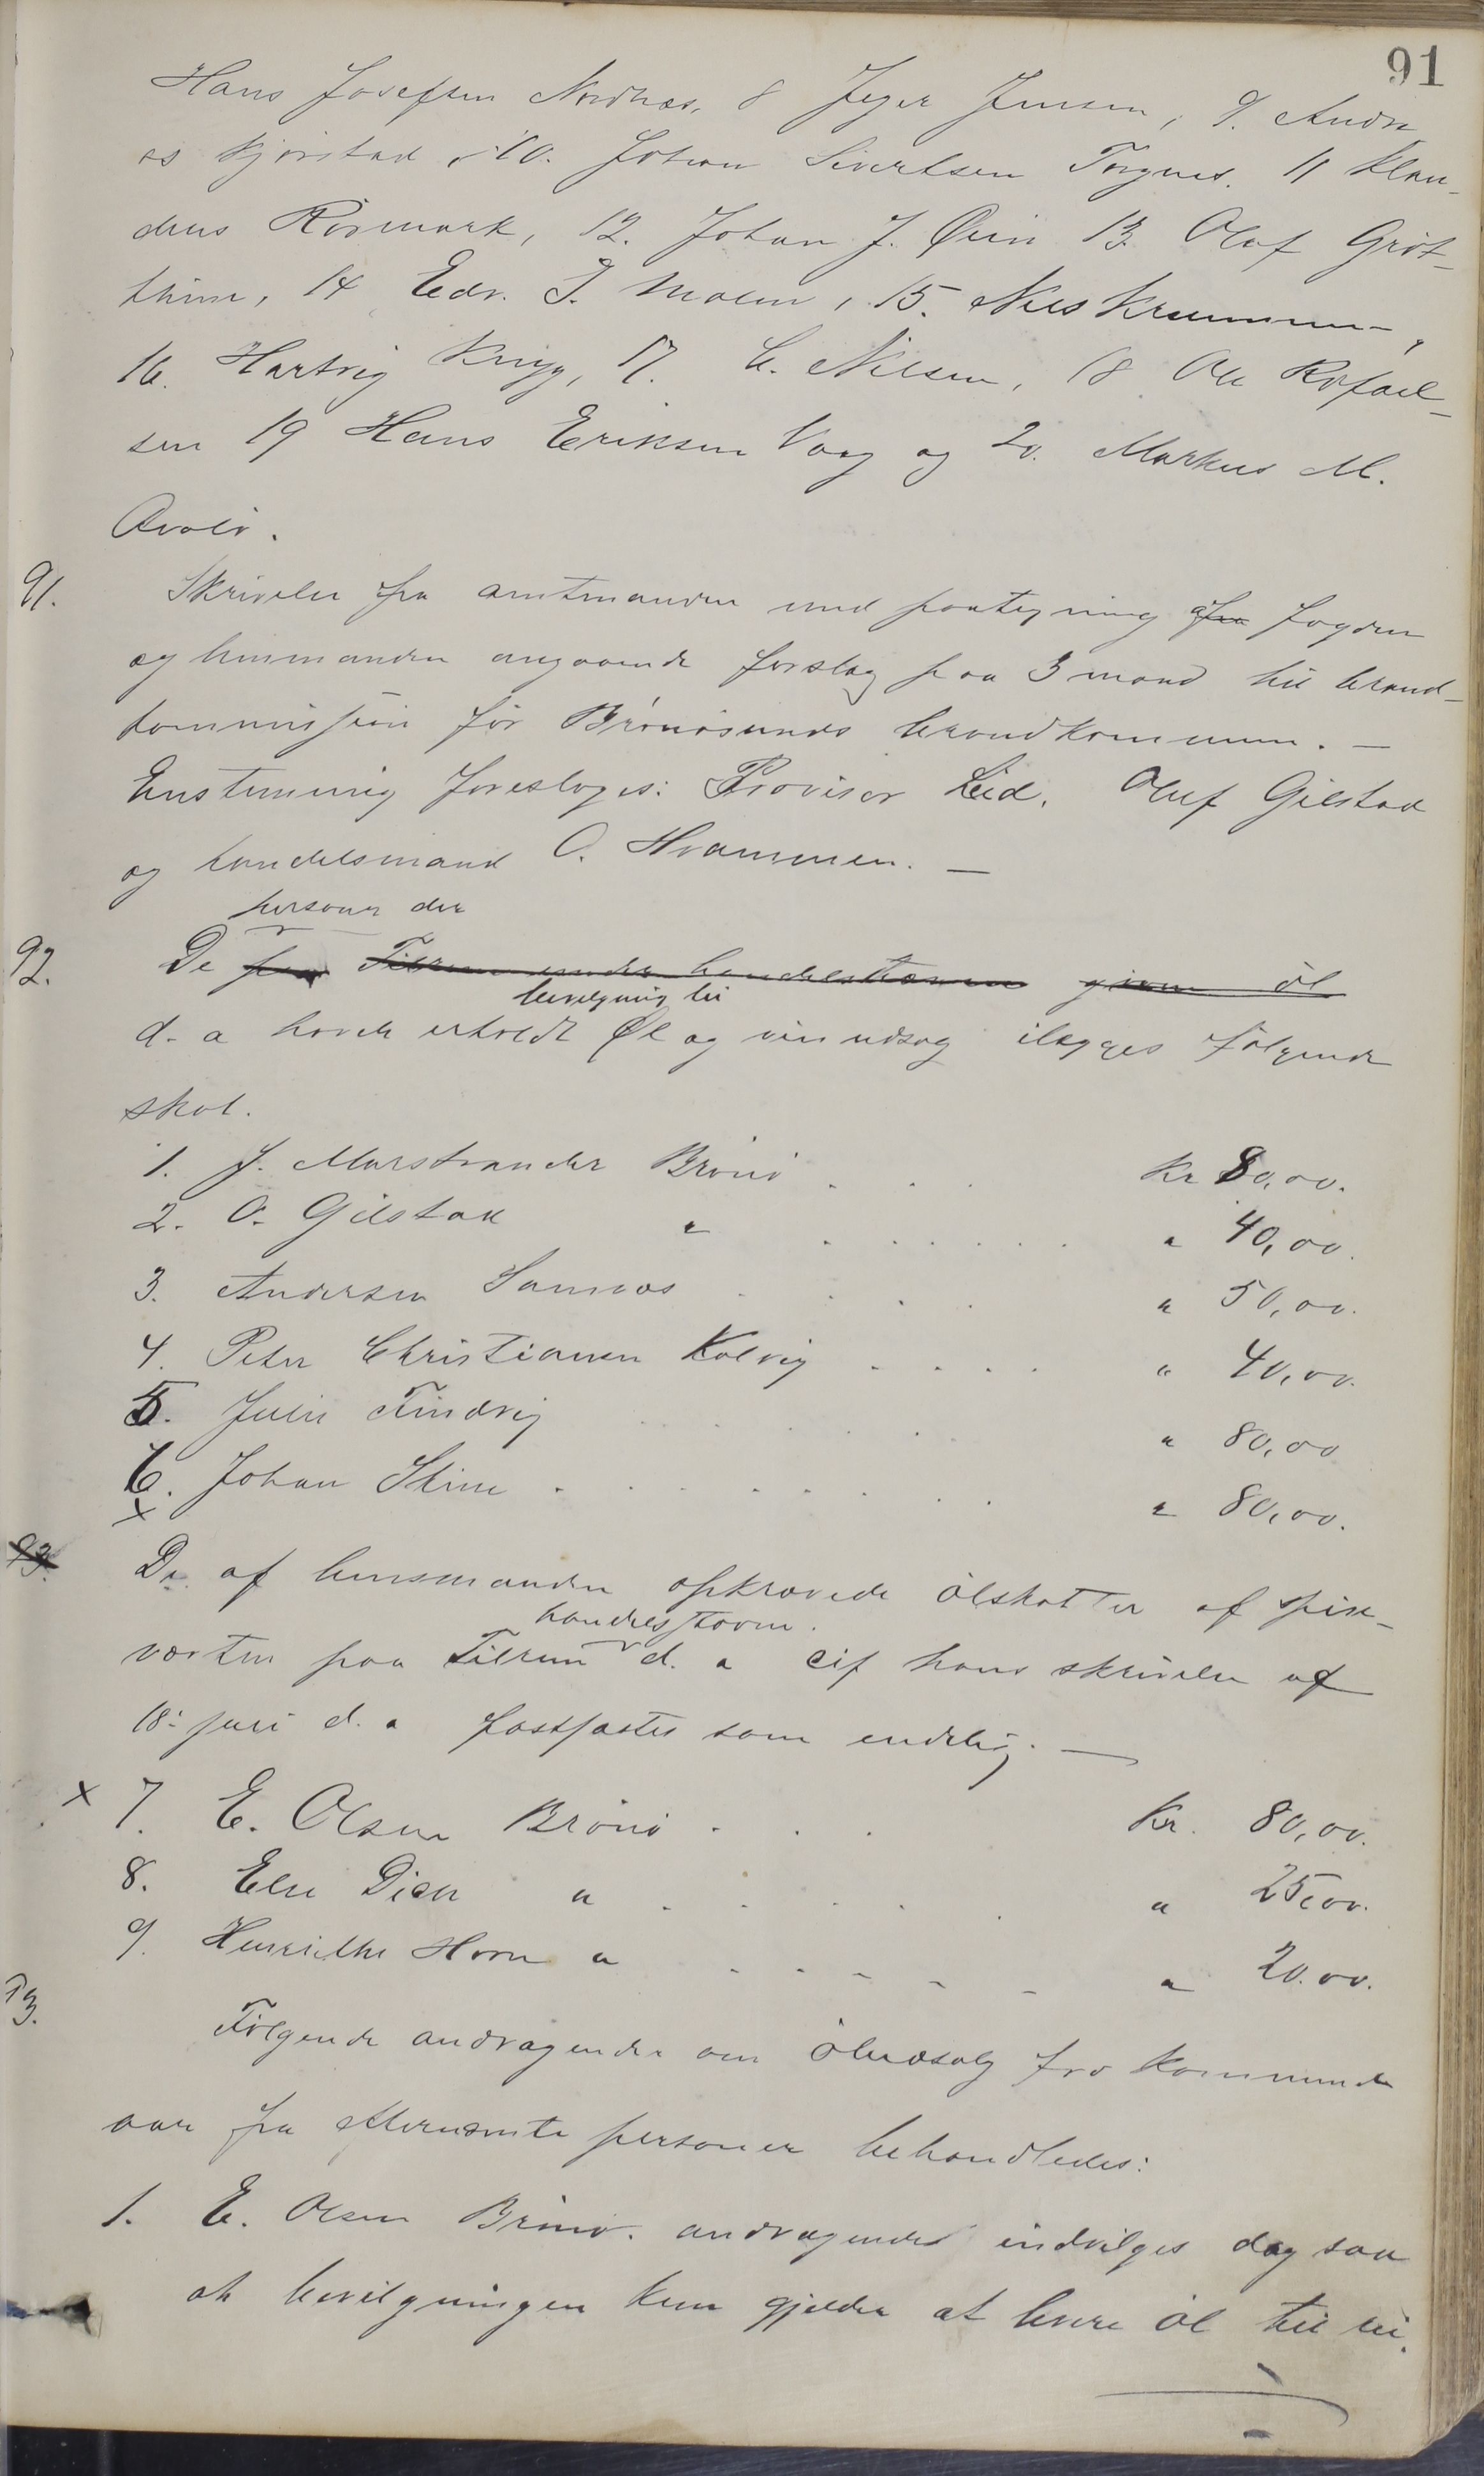 91
Hans Josefsen Nordhus, 8 Jeger Jensen, 9. Andre
as Kjørstad, 10. Johan Sivertsen Torgnes. 11 Klau-
dius Rosmark, 12. Johan J. Øien 13 Olaf Grøt-
heim, 14 Edv. J. Moen, 15. Nils Krummen,
16. Hartvig Krigg, 17. C. Nilsen, 18 Ole Rafael-
sen 19 Hans Eriksen Vaag og 20. Markus M.
Kvalø.
91. Skrivelse fra amtmanden med paategning af fogden
og lensmanden angaaende forslag paa 3 mand til brand-
kommission for Brønøsunds brandkommune. —
Enstemmig foresloges: Provisor Lid, Oluf Gilstad
og handelsmand O. Hvammen. —
personer der
92. De paa Tilrem under handelstævnen givne øl
bevilgning til
d. a havde erholdt Øl og vinudsalg ilægges følgende
skat.
1. J. Marstrander Brønø . . . Kr 80,00.
2. O. Gilstad " . . . . . . " 40,00.
3. Andersen Sømnes . . . . " 50,00.
4. Peter Christiansen Kolvig . . . . " 40,00.
5. Julie Tindvig . . . . . " 80,00
6. Johan Skine . . . . . . . . " 80,00.
x
93. De af lensmanden opkrævede ølskatter af spise-
handelsstævne.
værter paa Tilrem d. a cif hans skrivelse af
18: juli d. a fastsattes som endelig. —
x 7. E. Olsen Brønø . . . Kr. 80,00.
8. Else Dick " . . . . . " 25,00.
9. Henriette Horn " . . . . . " 20.00.
93.
Følgende andragender om øludsalg for kommende
aar fra efternævnte personer behandledes:
1. E. Olsen Brønø. andragendet indvilges dog saa
at bevilgningen kun gjælder at levere øl til